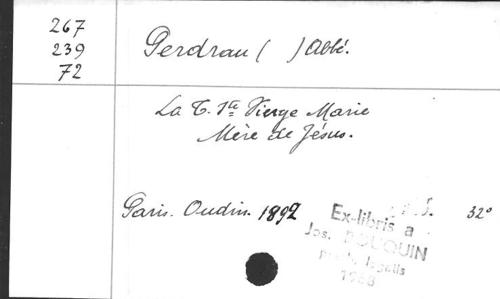 267
239
72
Perdrau ( ) Abbé.
La T. Ste Vierge Marie
Mère de Jésus.
Paris. Oudin. 1892 32°
Ex-libris a
Jos. BOUQUIN
1968